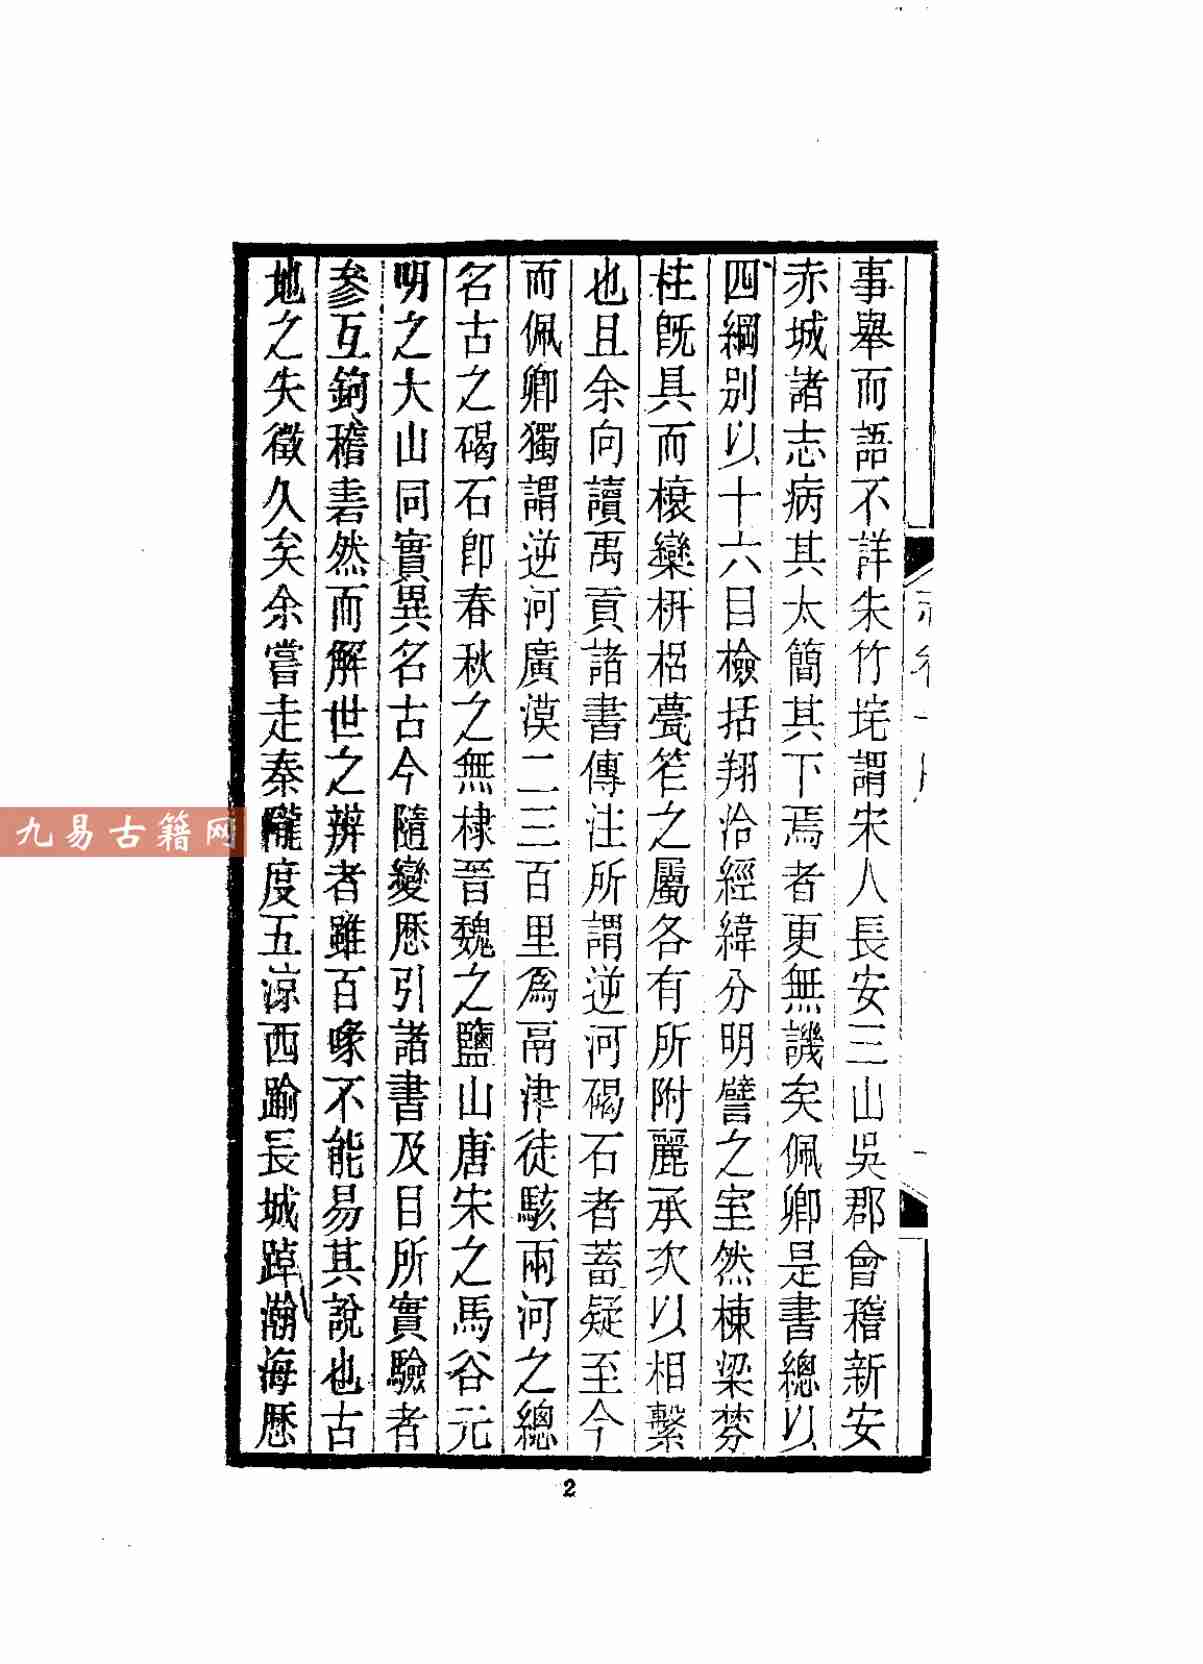 事舉而語不詳朱竹垞謂宋人長安三山吳郡會稽新安
赤城諸志病其太簡其下焉者更無譏矣佩卿是書總以
四綱別以十六目檢括翔洽經緯分明譬之室然棟梁棼
柱既具而榱欒枅梠甍笮之屬各有所附麗承次以相繫
也且余向讀禹貢諸書傳注所謂逆河碣石者蓄疑至今
而佩卿獨謂逆河廣漠二三百里為鬲津徒駭兩河之總
名古之碣石即春秋之無棣晉魏之鹽山唐宋之馬谷元
明之大山同實異名古今隨變歷引諸書及目所實驗者
參互鉤稽砉然而解世之辨者雖百喙不能易其說也古
地之失徵久矣余嘗走秦隴度五涼西踰長城踔瀚海歷
2
九易古籍网